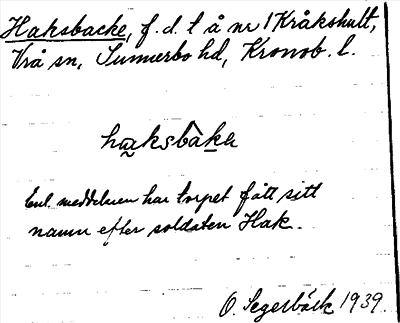 Haksbacke, f. d. t å nr 1 Kråkshult,
Vrå sn, Sunnerbo hd, Kronob. l.
haksbàka
Enl. meddelaren har torpet fått sitt
namn efter soldaten Hak.
O. Segerbäck 1939.